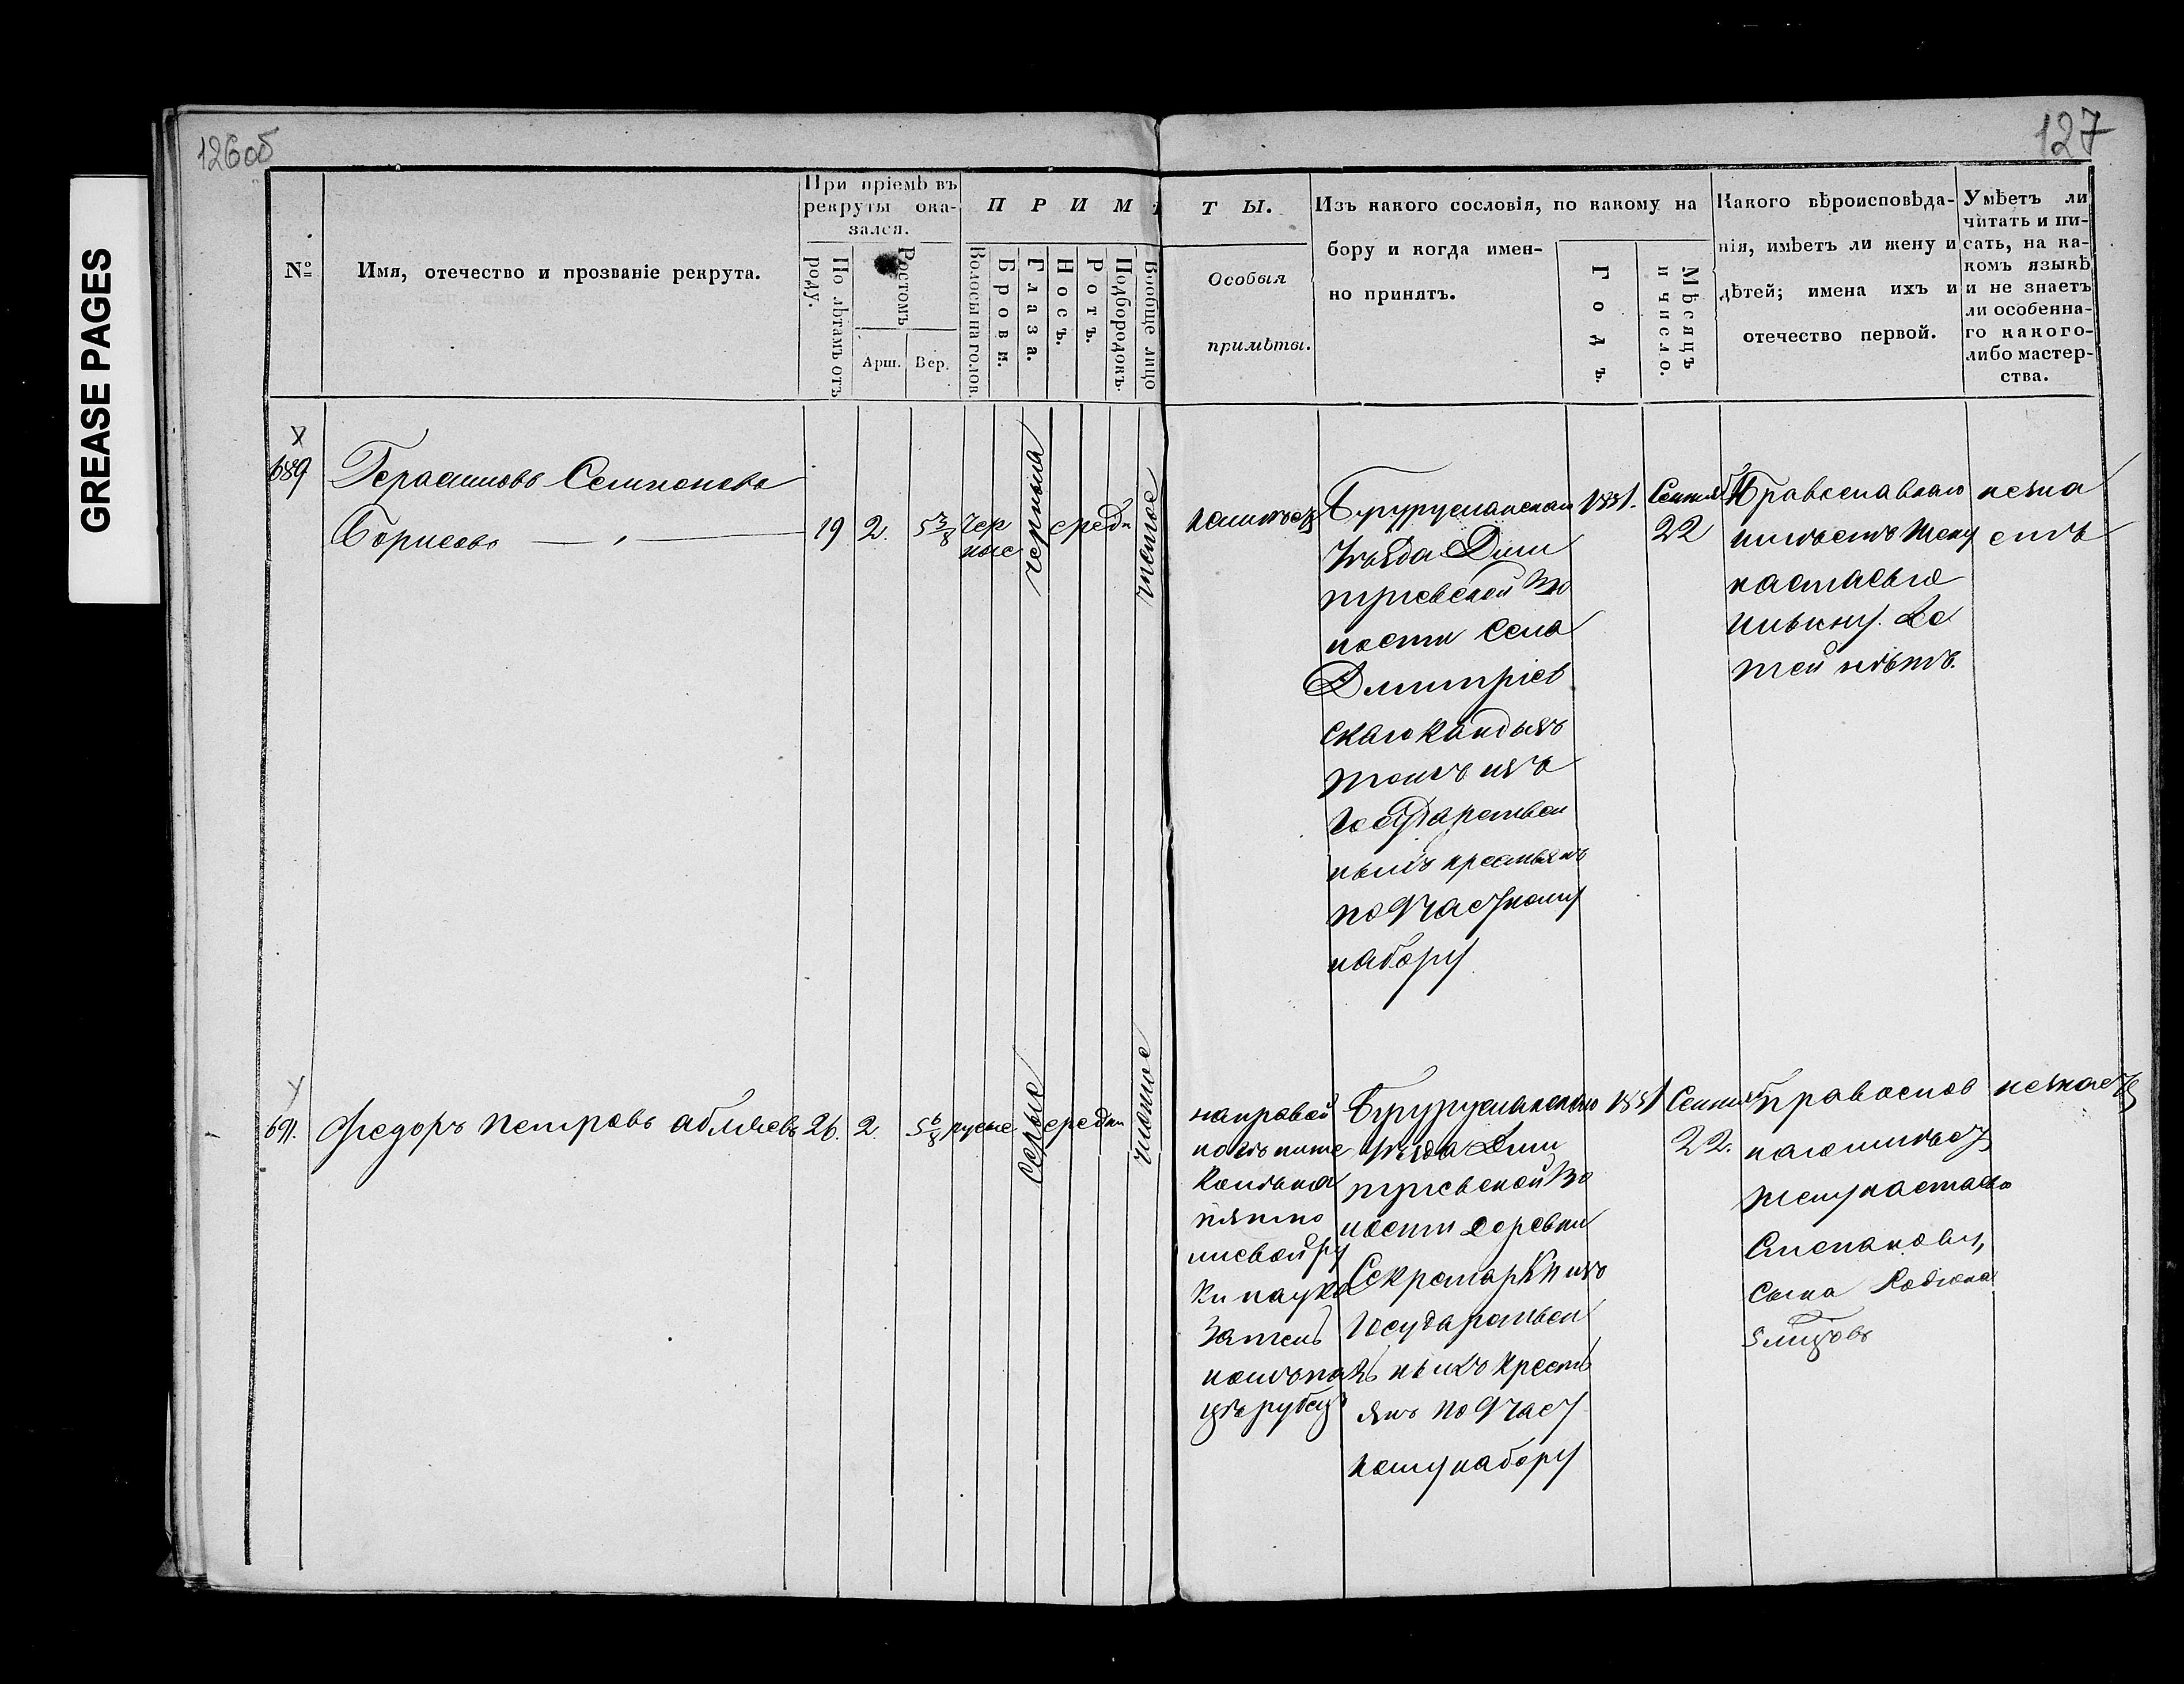 GREASE PAGES
126об
127
№
Имя, отечество и прозваніе рекрута.
При пріемѣ въ
рекруты ока-
зался.
По лѣтамъ отъ
роду.
Ростомъ
Арш.
Вер.
П Р И М Ѣ
Волосы на голов.
Брови.
Глаза.
Носъ.
Ротъ.
Подбородокъ.
Вообще лицо
Т Ы.
Особыя
примѣты.
Изъ какого сословія, по какому на
бору и когда имен-
но принятъ.
Годъ.
Мѣсяцъ
и число.
Какого вѣроисповѣда-
нія, имѣетъ ли жену и
дѣтей; имена ихъ и
отечество первой.
Умѣетъ ли
читать и пи-
сать, на ка-
комъ языкѣ
и не знаетъ
ли особенна-
го какого-
либо мастер-
ства.
689
Герасимовъ Семионовъ
Борисовъ
19
2.
5 3/8
чер
ные
черныя
средн
чистое
неимѣетъ
Бугурусланскаго
Уѣзда Дми
тріевской Во
лости Села
Дмитріев
скаго
тожъ изъ
Государствен
ныхъ крестьянъ
по Частному
набору
1851.
Сентяб
22
Православнаго
имѣетъ жену
настасью
Де
тей нѣтъ.
незна
етъ
691.
Федоръ Петровъ
26.
2.
5 6/8
русые
Серые
средни
чистое
направой
ногѣ ниже
Колѣна
пятно
илевой ру
ки
рубец
Бугурусланскаго
уѣзда Дми
тріевской Во
лости деревни
Секретарки изъ
Государствен
ныхъ Кресть
янъ по Част
ному набору
1851
Сентяб
22.
православ
наго имѣет
жену настасью
Степанову,
Сына Родиона
незнает